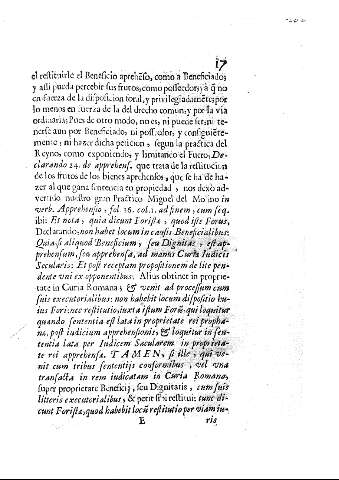 17
el restituirle el Beneficio aprehẽso, como a Beneficiado;
y assi pueda percebir sus frutos, como posseedor; a q̃ no
en fuerza de la disposicion foral, y privilegiadamẽte; por
lo menos en fuerza de la del drecho comun; y por la via
ordinaria; Pues de otro modo, no es, ni puede ser ni te-
nerse aun por Beneficiado, ni possessor, y consiguiẽte-
mente, ni hazer dicha peticion, segun la practica del
Reyno, como exponiendo, y limitando el Fuero, De-
clarando 24. de apprehens. que trata de la restitucion
de los frutos de los bienes aprehensos, que se ha de ha-
zer al que gana sentencia en propiedad, nos dexò ad-
vertido nuestro gran Practico Miguel del Molino in
verb. Apprehensio, fol. 36. col. 1. ad finem, cum seq.
ibi: Et nota, quòd dicunt Foristæ, quòd iste Forus,
Declarando; non habet locum in causis Beneficialibus:
Quia si aliquod Beneficium, seu Dignitas, est ap-
prehensum, seu apprehensa, ad manus Curiæ Iudicis
Secularis: Et post receptam propositionem de lite pen-
dente vni ex opponentibus. Alius obtinet in proprie-
tate in Curia Romana, & venit ad processum cum
suis executorialibus: non habebit locum dispositio hu-
ius Fori: nec restitutio, iuxta istum Forũ: qui loquitur
quando sententia est lata in proprietate rei propha-
næ, post iudicium apprehensionis; & loquitur in sen-
tentia lata per Iudicem Sæcularem in proprieta-
te rei apprehensæ. TAMEN, si ille, qui ve-
nit cum tribus sententijs conformibus, vel vna
transacta in rem iudicatam in Curia Romana,
super proprietate Beneficij, seu Dignitatis, cum suis
litteris executorialibus, & petit sibi restitui: tunc di-
cunt Foristæ, quod habebit locũ restitutio per viam iu-
E ris